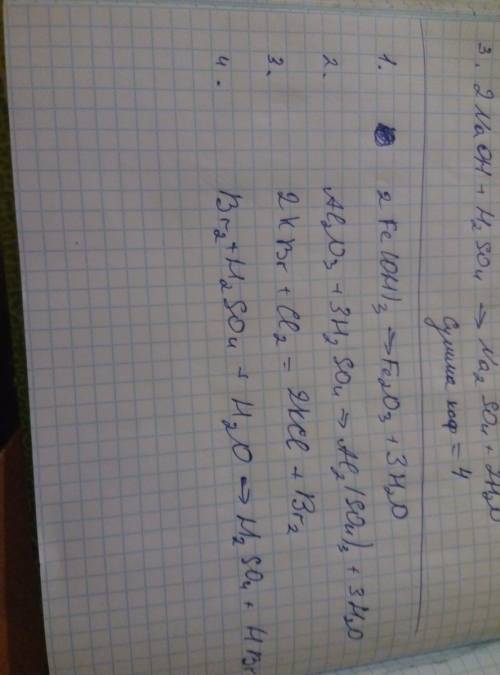 3. 2NaOH + H₂SO₄ → Na₂SO₄ + 2H₂O
Сумма коэф = 4
1. 2Fe(OH)₃ → Fe₂O₃ + 3H₂O
2. Al₂O₃ + 3H₂SO₄ → Al₂(SO₄)₃ + 3H₂O
3. 2KBr + Cl₂ = 2KCl + Br₂
4. Br₂ + H₂SO₄ + H₂O → H₂SO₄ + HBr